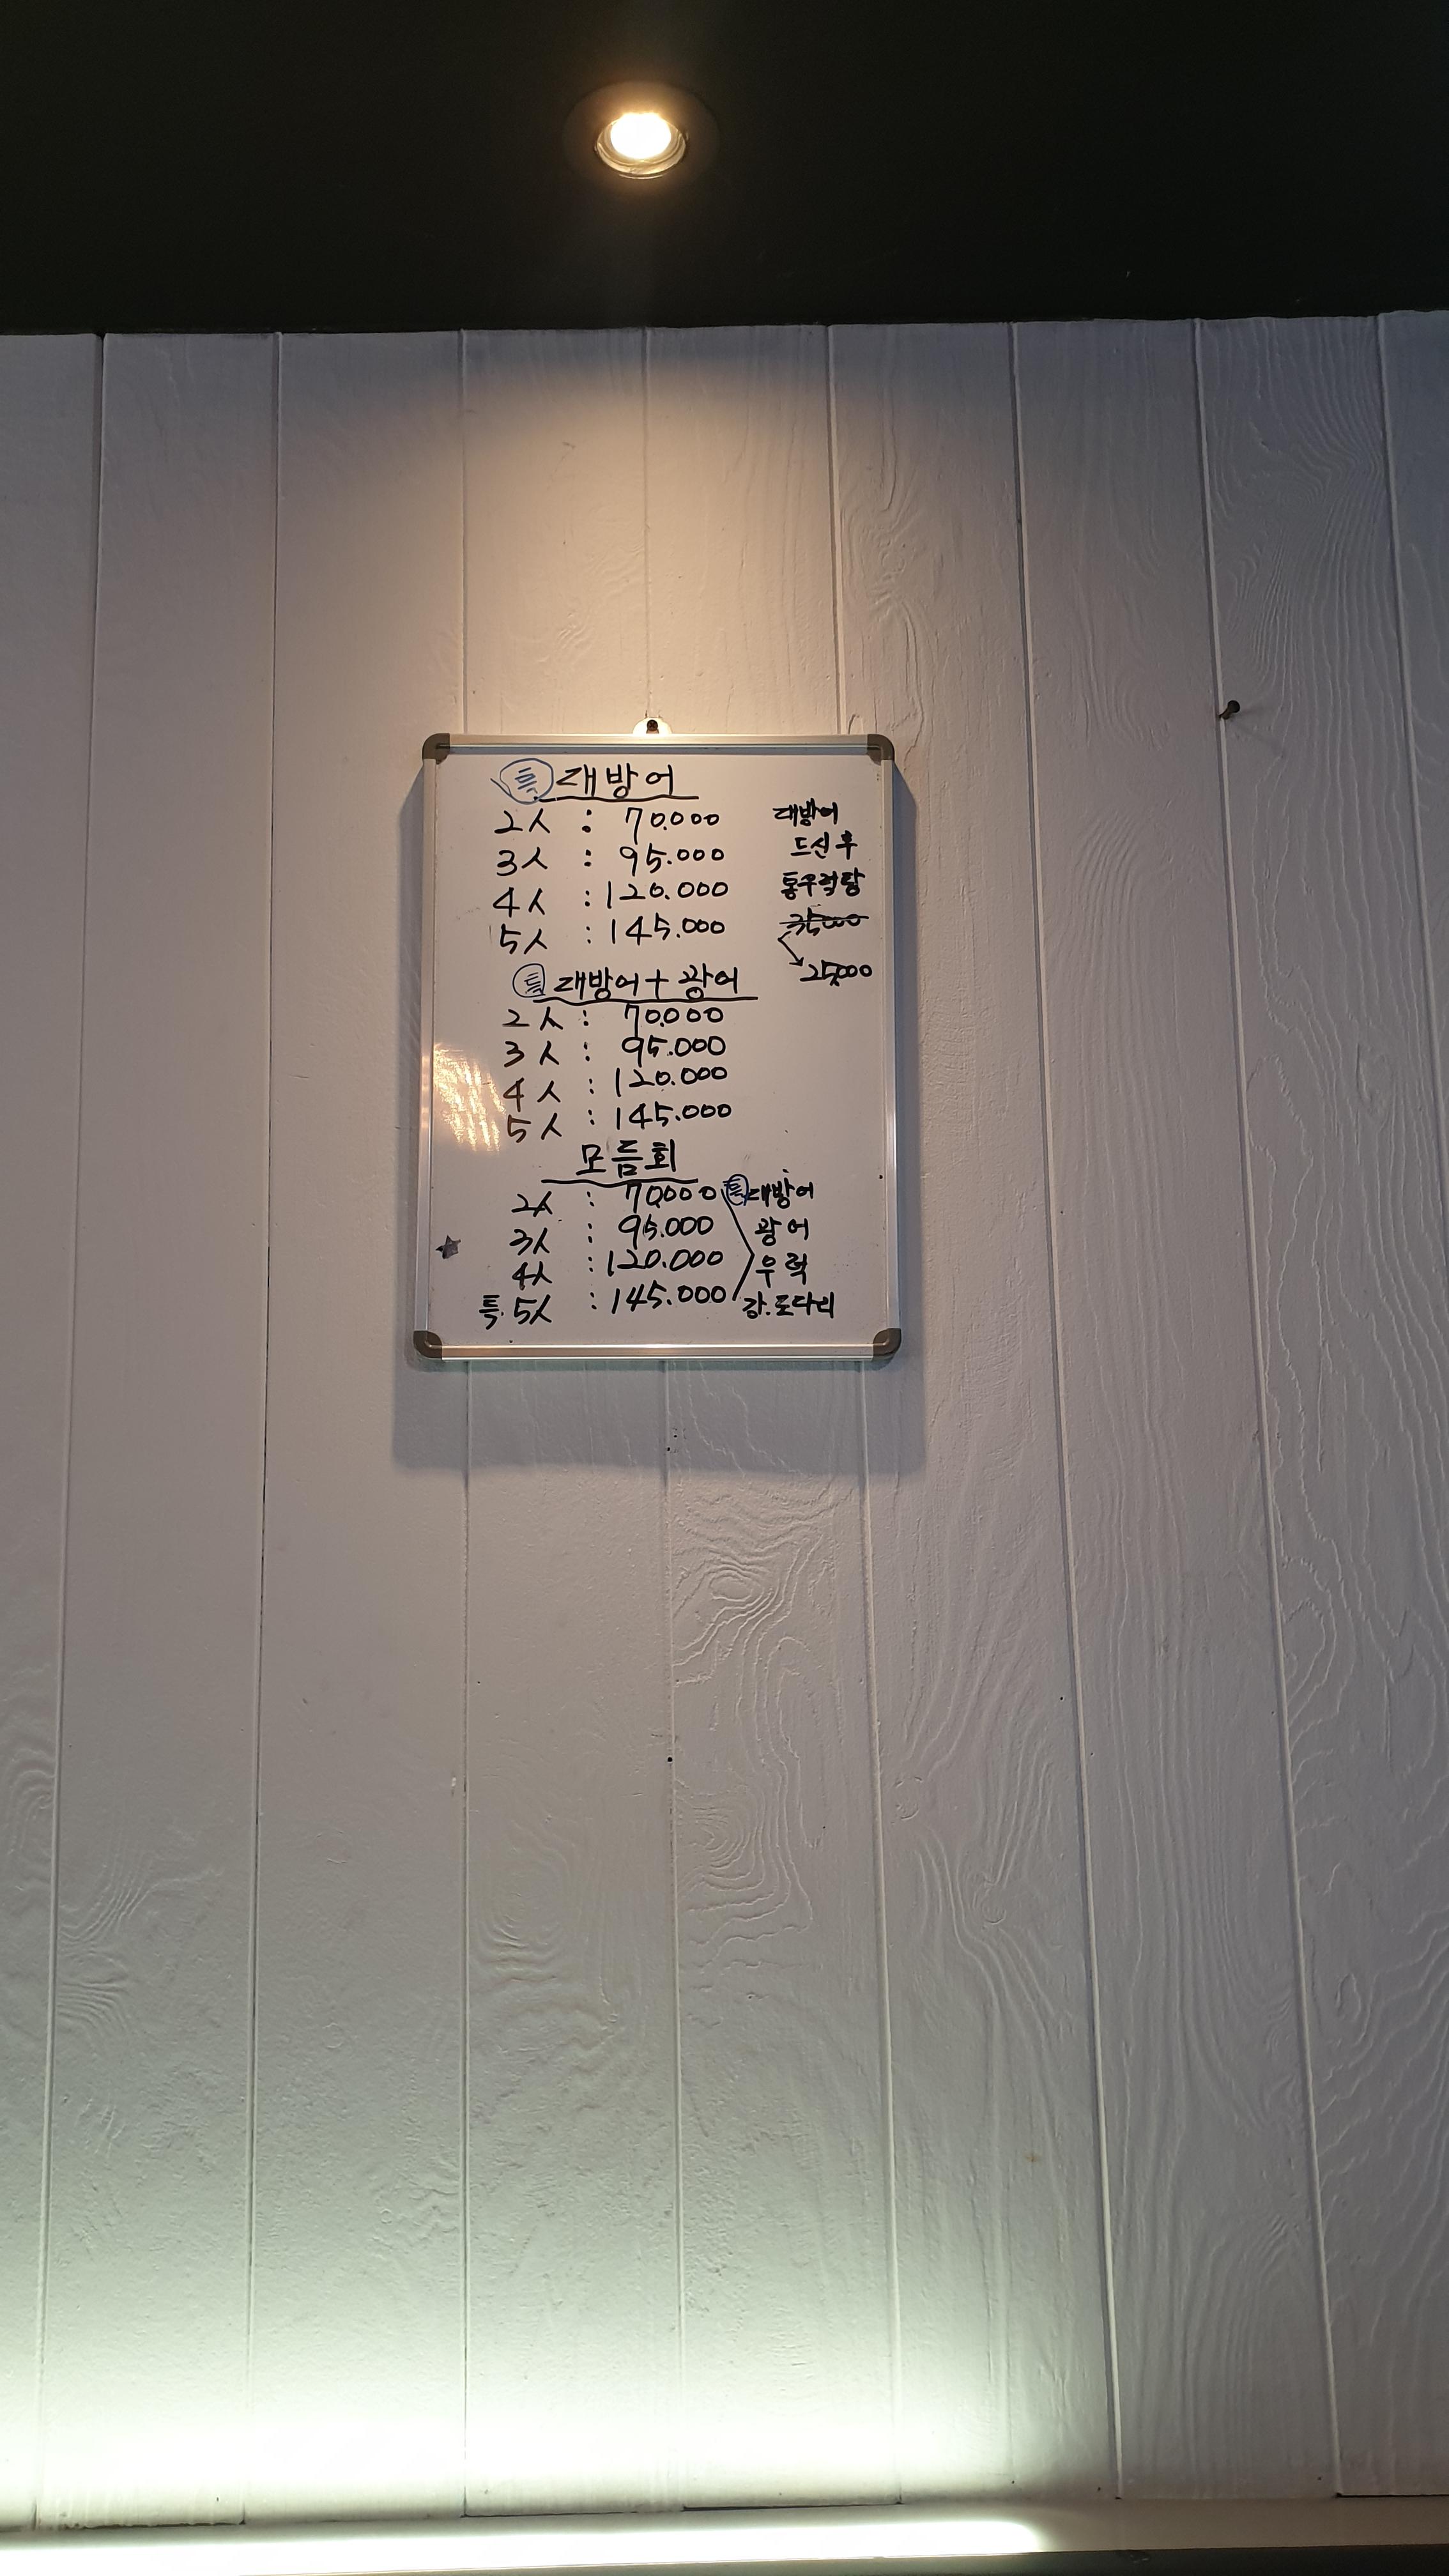 특 대방어
2人 : 70.000
3人 : 95.000
4人 : 120.000
5人 : 145.000
대방어
드신 후
통우럭탕
35000
25,000
특 대방어 + 광어
2人 : 70.000
3人 : 95.000
4人 : 120.000
5人 : 145.000
모듬회
2人 : 70.000
3人 : 95.000
4人 : 120.000
특. 5人 : 145.000
특 대방어
광어
우럭
강.도다리